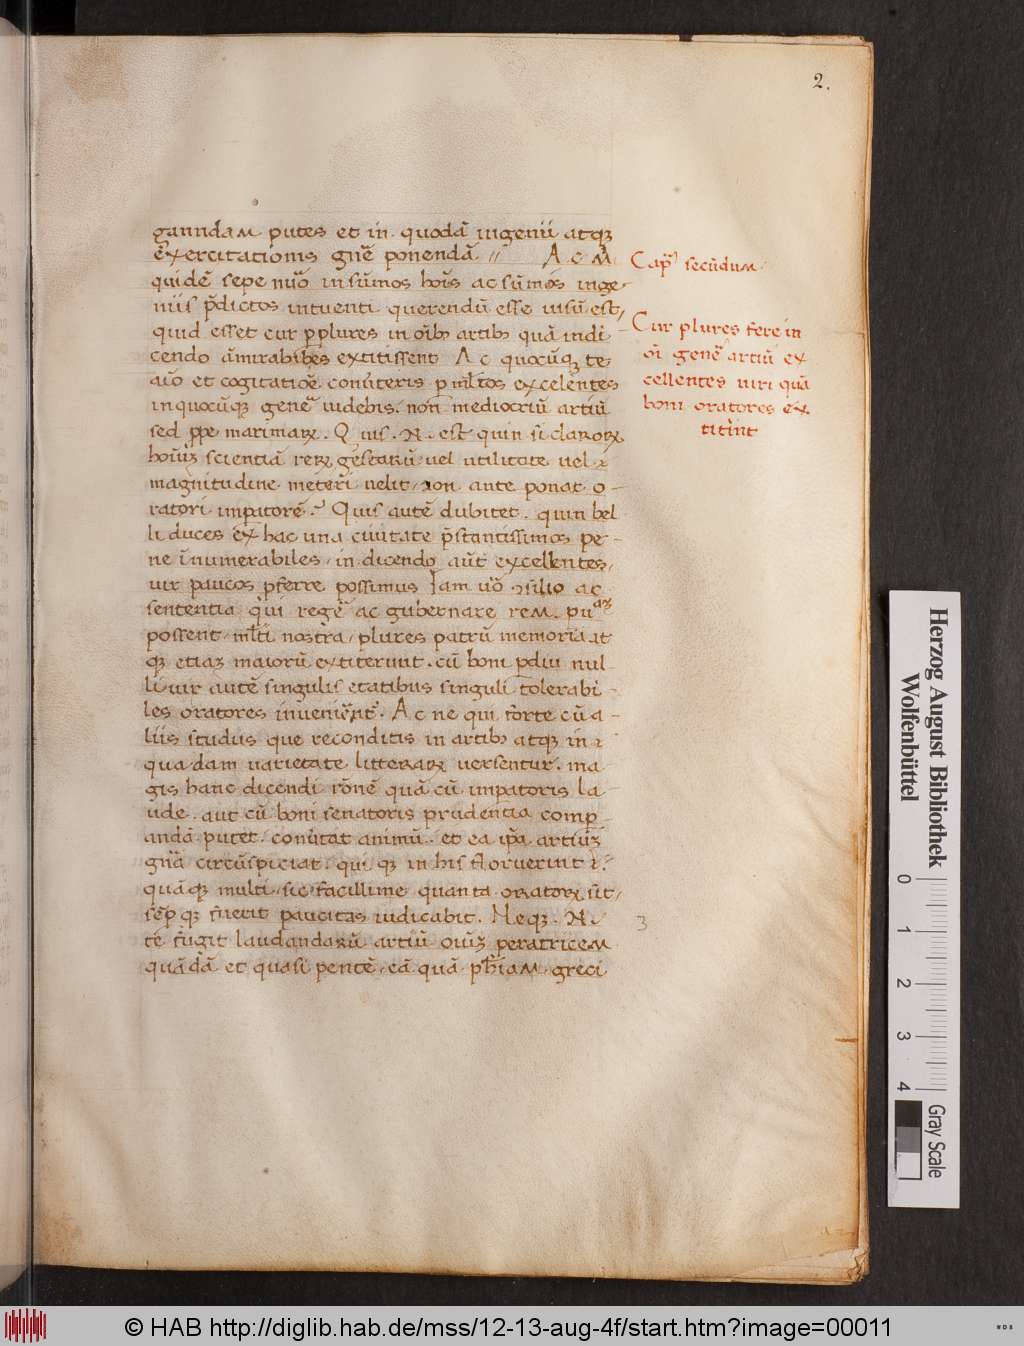 2.
ganndam putes et in quodā ingenii atqꝫ
exercitationis gn̄e ponendā. // A c M.
quidē sepe nūo in sūmos hoīs ac sūmos inge-
niis p̄dictos intuenti querendū esse uisū est,
quid esset cur p plures in oīb artib quā indi-
cendo āmirabiles extitissent Ac quocūqꝫ te
aīo et cogitatiōe conūteris p mĺtos excelētes
inquocūqꝫ genē uidebis. non mediocriū artiū
sed ꝓpe marimaꝝ. Q uis. N. est quin si claroꝝ
hoīuꝫ scientiā reꝝ gestarū uel utilitate uel ꝛ
magnitudine meteri uelit, non ante ponat o-
ratori impatorē? Quis autē dubitet. quin bel
li duces ex hac una ciuitate p̄stantissimos pe-
ne īnumerabiles, in dicendo aūt excellentes,
uix paucos ꝓferre possimus Iam uō ꝯsilio ac
sententia qui regē ac gubernare rem. pu.aꝫ
possent, mĺti nostra, plures patrū memoria at
qꝫ etiaꝫ maiorū extiterunt. cū boni pdiu nul
li uix autē singulis etatibus singuli tolerabi-
les oratores inuenient. Ac ne qui forte cū a-
liis studiis que reconditis in artib atqꝫ in ꝛ
quadam uarietate litteraꝝ uersentur. ma
gis hanc dicendi rōnē quā cū impatoris la-
ude. aut cū boni senatoris prudentia comp-
andā putet. conūtat animū. et ea ipa artiuꝫ
gn̄a circūspiciat. qui qꝫ in his floruerint ꝛ?
quāqꝫ multi, sic facillime quanta oratoꝝ sit,
sēp qꝫ fuerit paucitas iudicabit. Neqꝫ. N.
te fugit laudandarū artiū oīuꝫ peratricem
quādā et quasi pentē, eā quā ph̄iam, greci
Cap secūdum.
Cur plures fere in
oī genē artiū ex
cellentes uiri quā
boni oratores ex
titint
3
Herzog August Bibliothek
Wolfenbüttel
0 1 2 3 4
Gray Scale
© HAB http://diglib.hab.de/mss/12-13-aug-4f/start.htm?image=00011